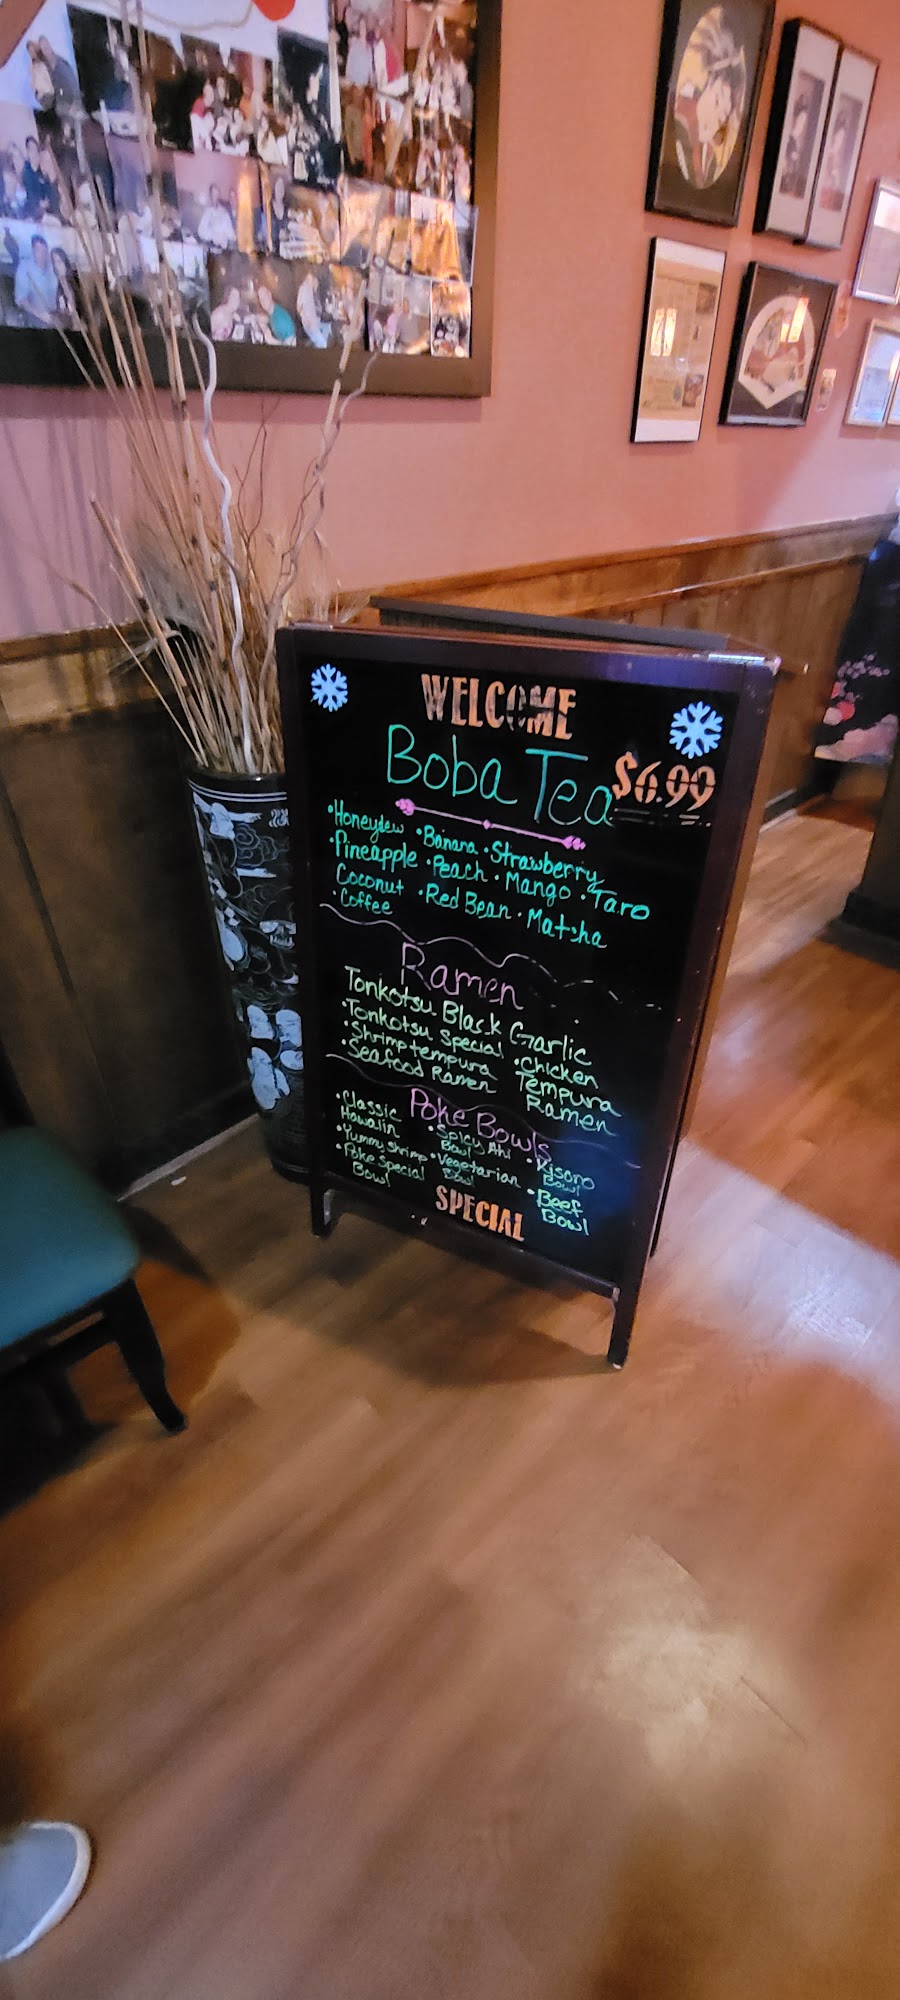 WELCOME
Boba Tea $6.99
•Honeydew •Banana •Strawberry
•Pineapple •Peach •Mango •Taro
Coconut •Red Bean •Matcha
•Coffee
Ramen
Tonkotsu Black Garlic
•Tonkotsu Special
•Shrimp tempura
•Seafood Ramen
•Chicken
Tempura
Ramen
Poke Bowls
•Classic
Hawaiin
•Yummy Shrimp
•Poke Special
Bowl
•Spicy Ahi
Bowl
•Vegetarian
Bowl
•Kisono
Bowl
•Beef
Bowl
SPECIAL